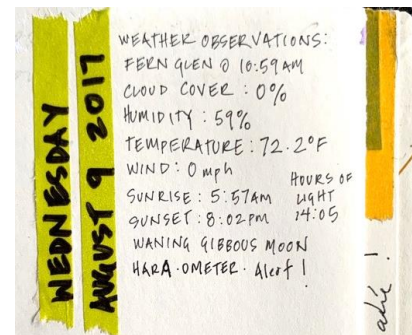 WEDNESDAY
AUGUST 9 2017
WEATHER OBSERVATIONS:
FERN GLEN @ 10:59 AM
CLOUD COVER: 0%
HUMIDITY: 59%
TEMPERATURE: 72.2°F
WIND: 0 mph
SUNRISE: 5:57AM
SUNSET: 8:02PM
HOURS OF
LIGHT
14:05
WANING GIBBOUS MOON
HARA·OMETER· Alert!